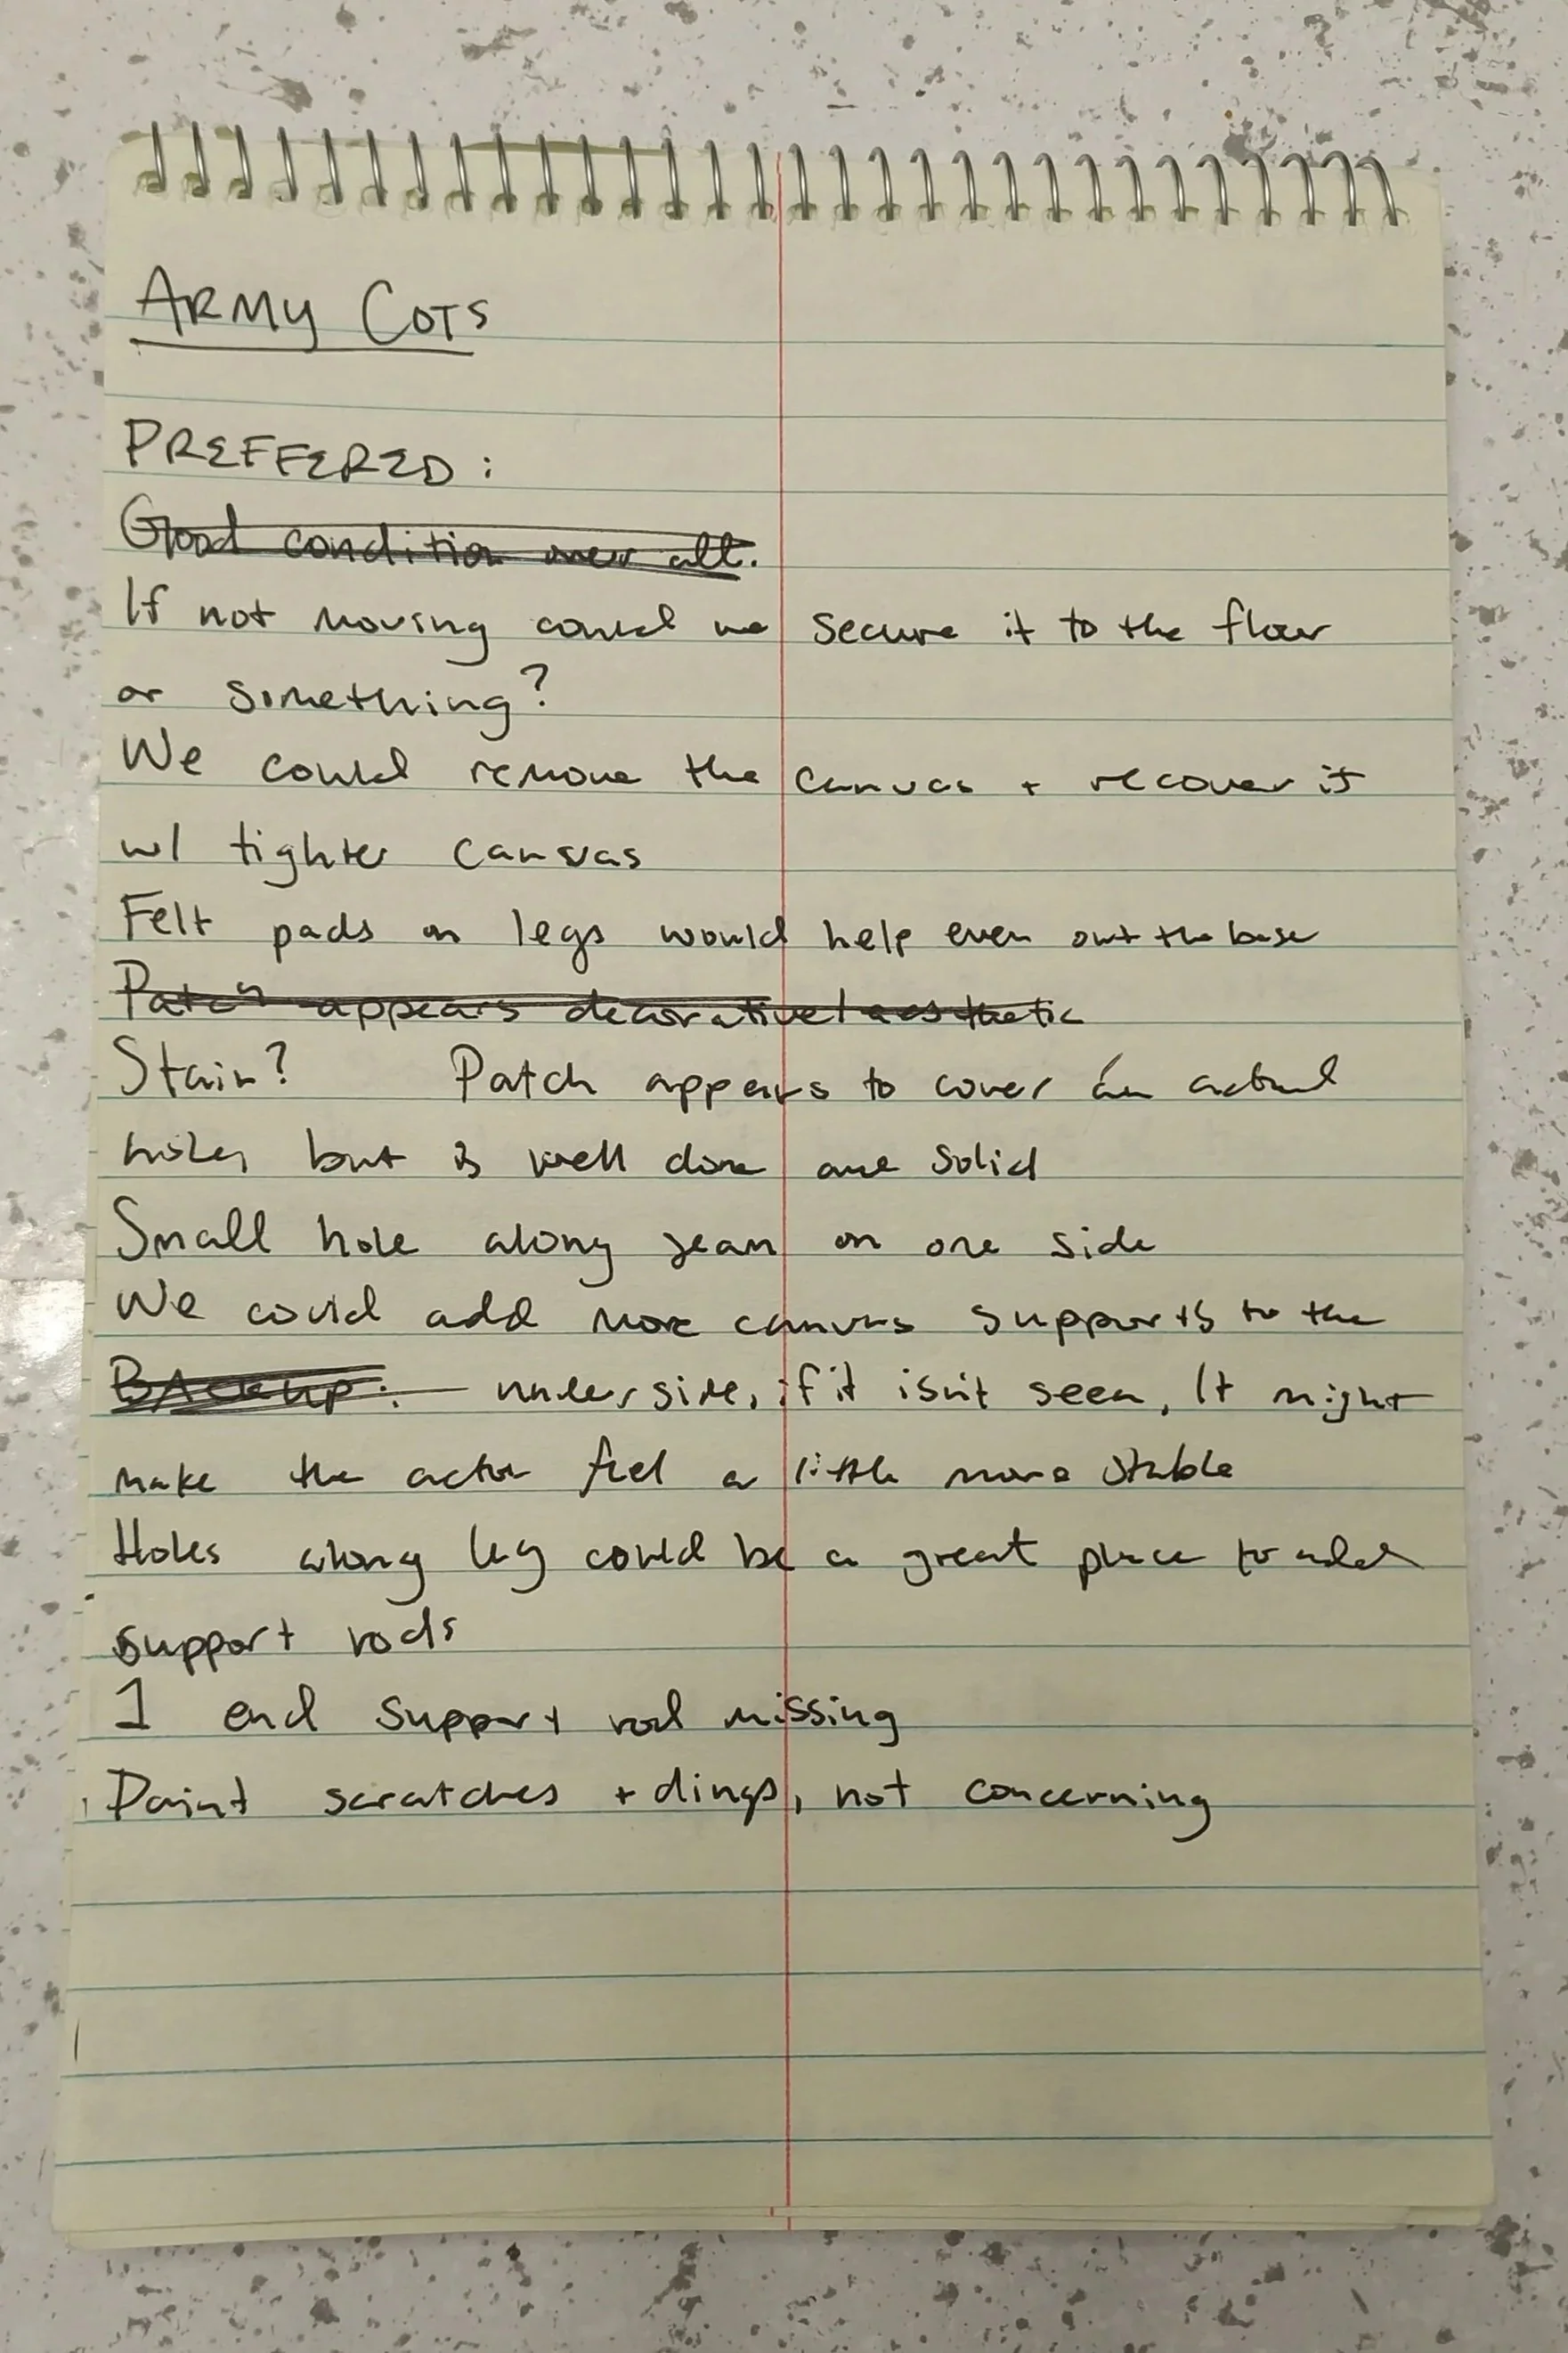 ARMY COTS
PREFFERED:
Good condition over all.
If not moving could we secure it to the floor
or something?
We could remove the canvas + recover it
w/ tighter canvas
Felt pads on legs would help even out the base
Patch appears decorative/aesthetic
Stain? Patch appears to cover an actual
holes but is well done and solid
Small hole along seam on one side
We could add more canvas supports to the
BACKUP: underside, if it isn't seen, It might
make the actor feel a little more stable
Holes along leg could be a great place to add
support rods
1 end support rod missing
Paint scratches + dings, not concerning